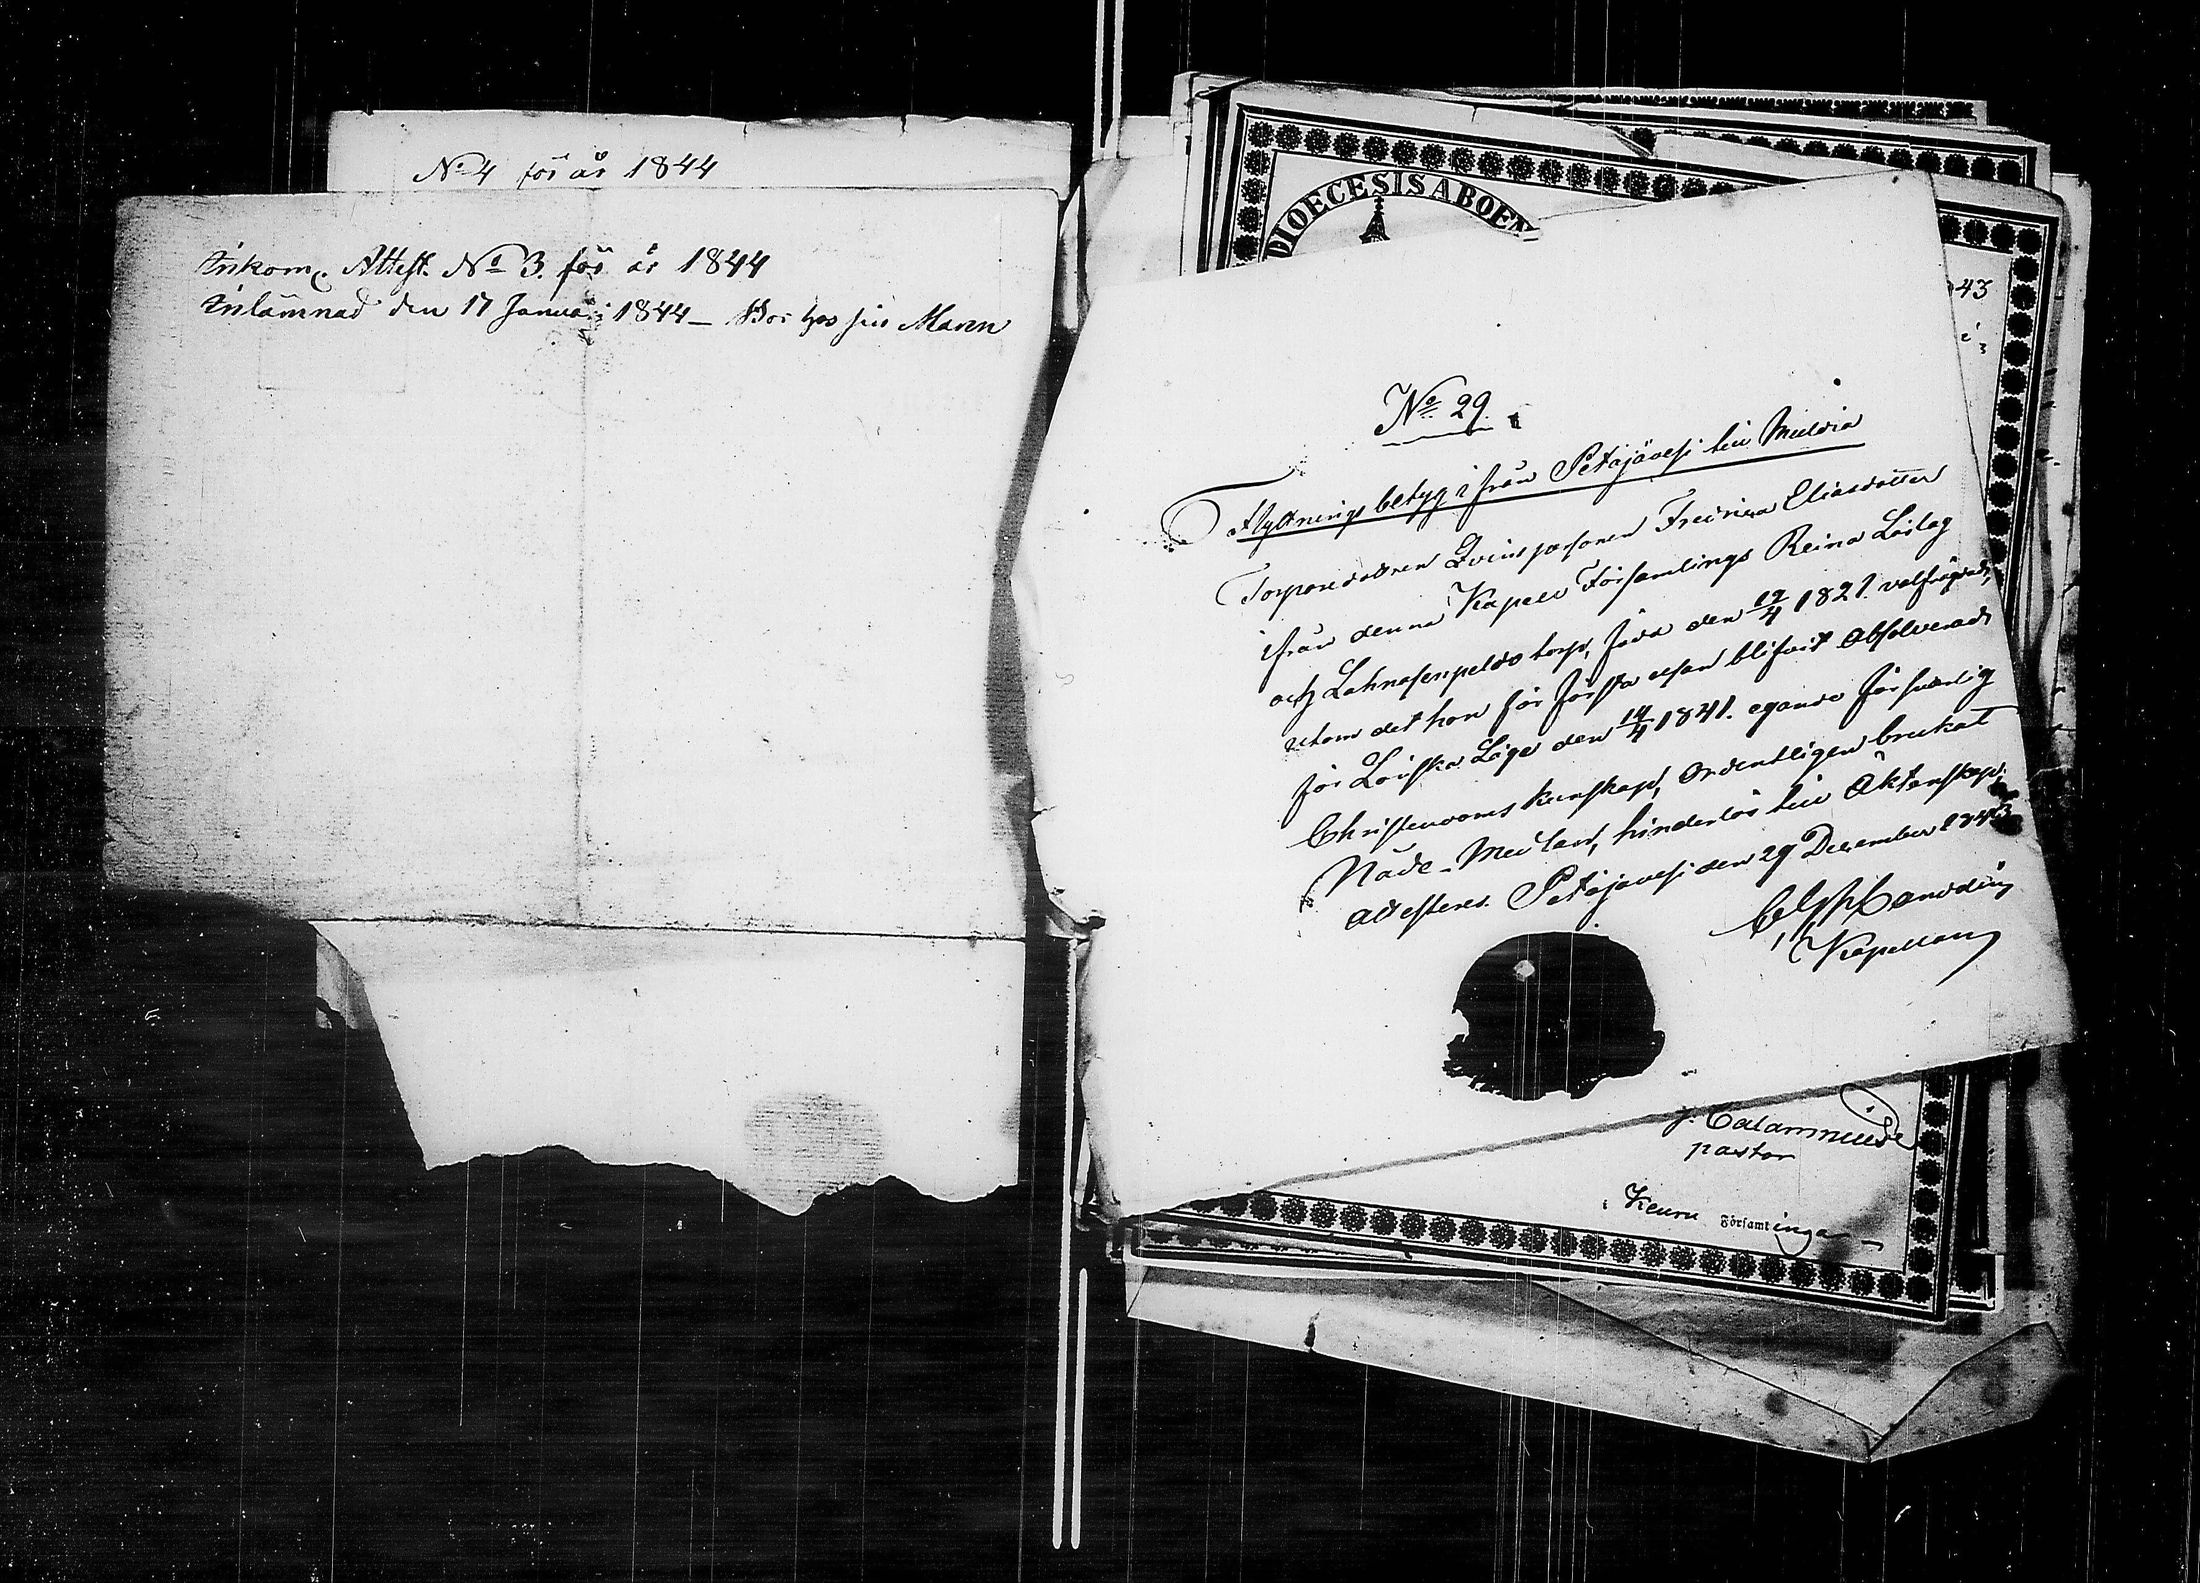 No 4 för år 1844
Inkom. Attest. No 3. för år 1844
Inlämnad den 17 Januari 1844 – Bor hos sin Mann
DIOECESIS ABOEN
43
No 29.
Flyttnings betyg ifrån Petäjävesi till Muldia
Torparedottren Qvinspersonen Fredrica Eliasdotter
ifrån denna Kapell Församlings Reina Lästag
och torp, född den 12/4 1821. välfrägdad,
utom det hon för första resan blifvit Absolverad
för Löuska Läge den 14/4 1841. egande försvarlig
Christendoms kunskap, Ordentligen brukat
Nåde-Medlen, hinderlös till Äktenskap.
attesteras. Petäjävesi den 29 December 1843
Kapellan
J. Calamnius
pastor
i Keuru Församlinga